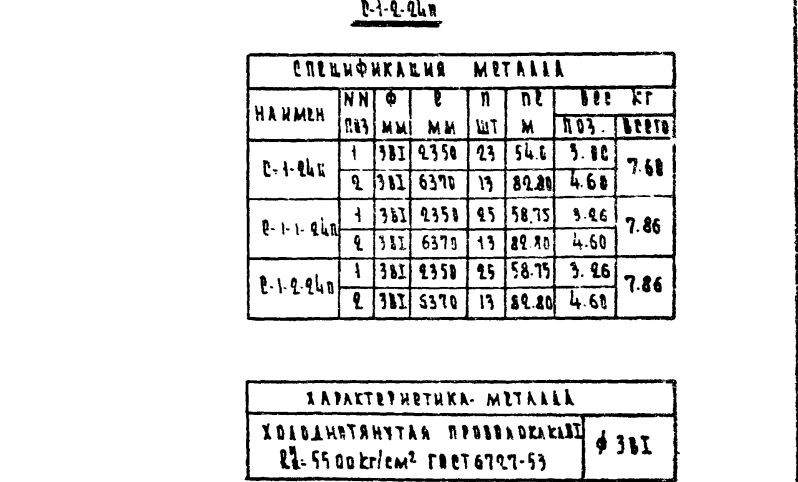 С-1-2-24п
СПЕЦИФИКАЦИЯ МЕТАЛЛА
НАИМЕН NN ПОЗ Ф ММ ℓ ММ П ШТ Пℓ М ВЕС КГ
ПОЗ. ВСЕГО
С-1-24п 1 3ВI 2350 23 54.0 3.00 7.60
2 3ВI 6370 13 82.80 4.60
С-1-1-24п 1 3ВI 2350 25 58.75 3.26 7.86
2 3ВI 6370 13 82.80 4.60
С-1-2-24п 1 3ВI 2350 25 58.75 3.26 7.86
2 3ВI 6370 13 82.80 4.60
ХАРАКТЕРИСТИКА МЕТАЛЛА
ХОЛОДНОТЯНУТАЯ ПРОВОЛОКА ВI ф 3ВI
= 5500 кг/см² ГОСТ 6727-53